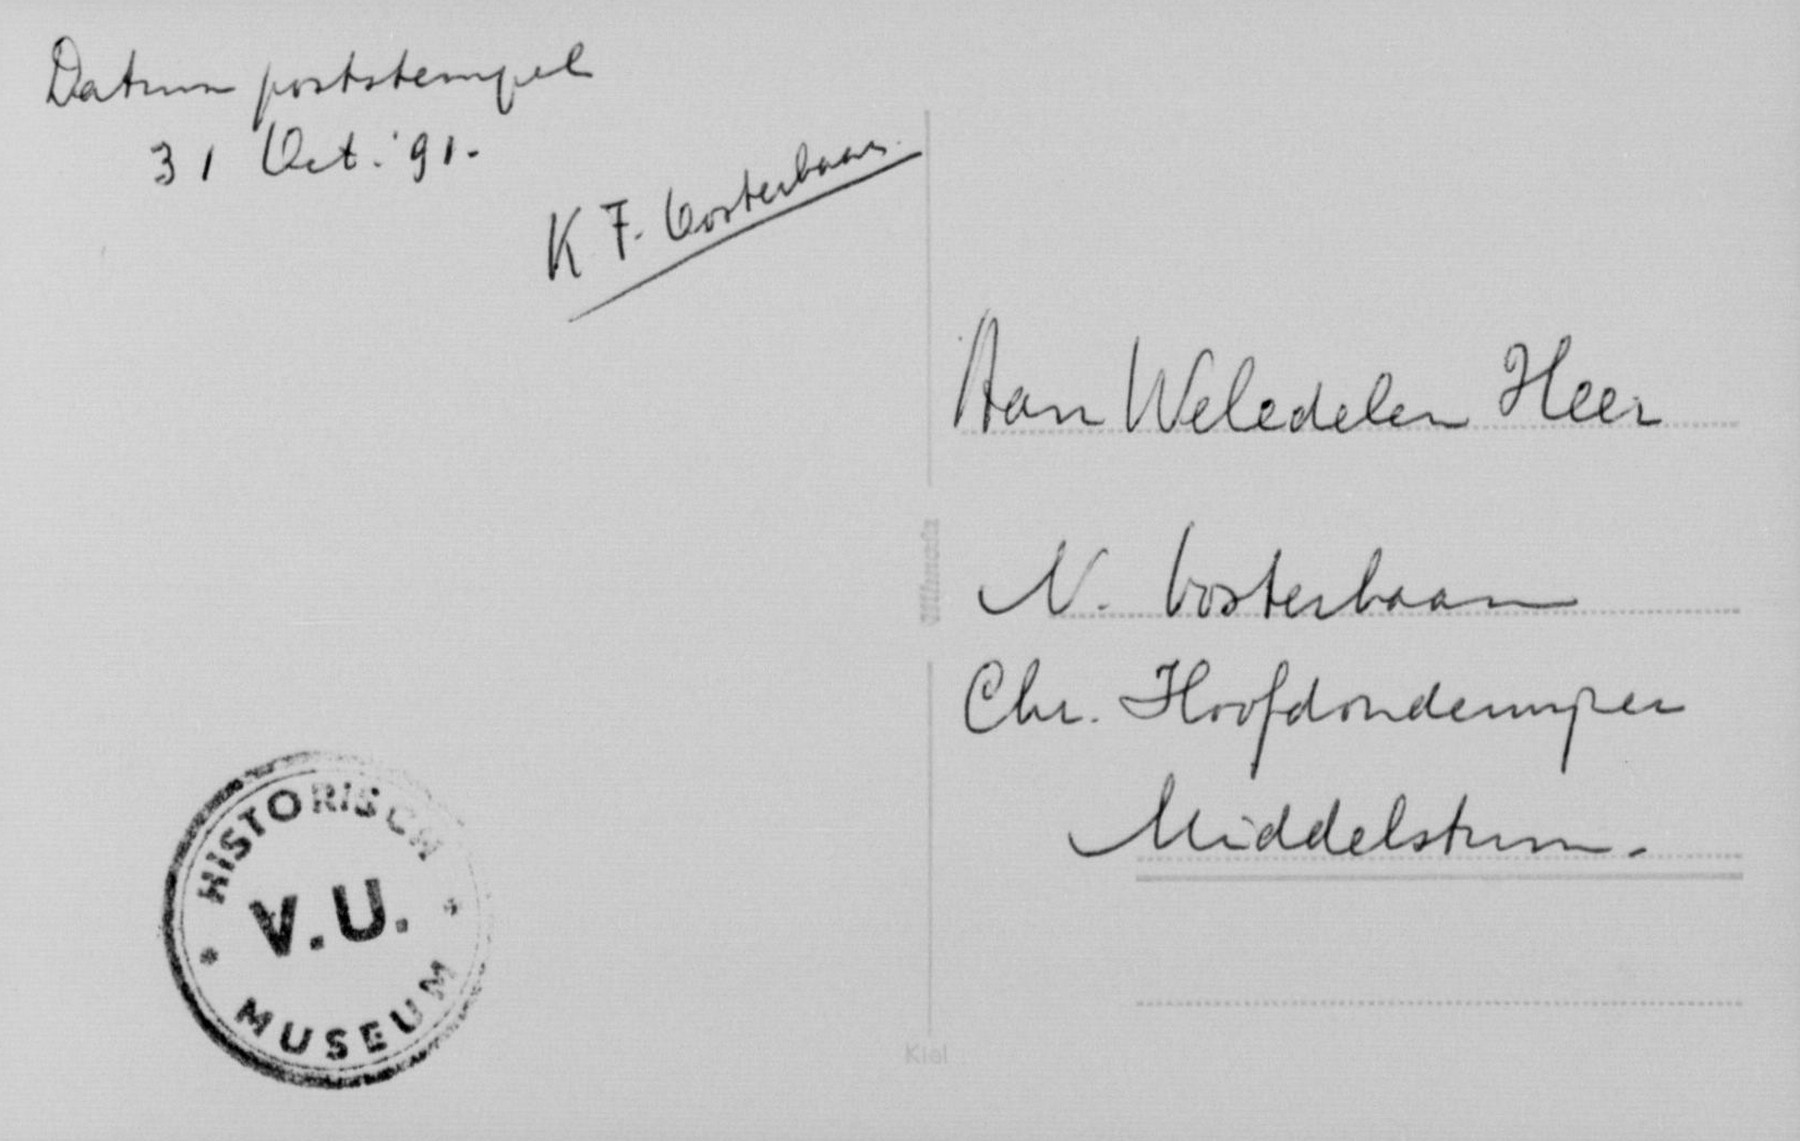 Datum poststempel
31 Oct. '91.
K F. Oosterbaan.
Aan Weledelen Heer
N. Oosterbaan
Chr. Hoofdonderwijzer
Middelstum.
HISTORISCH
V.U.
MUSEUM
Kiel